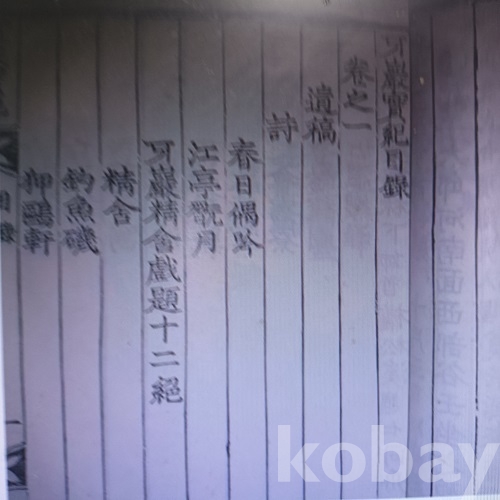 牙巖實紀目錄
卷之一
遺稿
詩
春日偶吟
江亭翫月
牙巖精舍戲題十二絕
精舍
釣魚磯
狎鷗軒
目錄
kobay